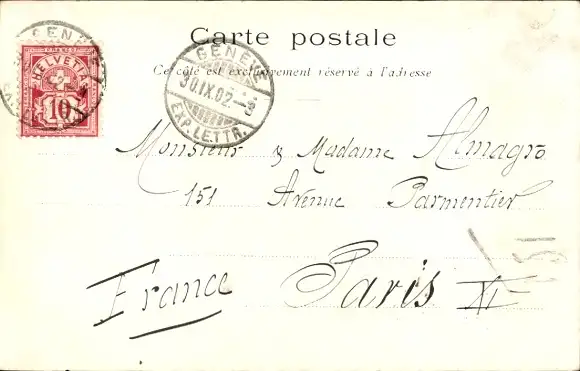 Carte postale
Ce côté est exclusivement réservé à l'adresse
GENÈVE
30.IX.02.-3
EXP. LETTR.
FRANCO
HELVETIA
10
Monsieur & Madame Almagro
151 Avenue Parmentier
Paris XI
France
151